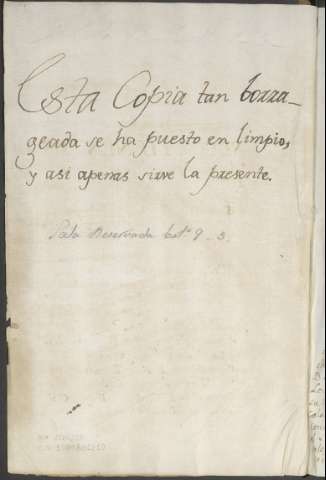 Esta Copia tan borra_
geada se ha puesto en limpio,
y asi apenas sirve la presente.
Sala Reservada
9_3.